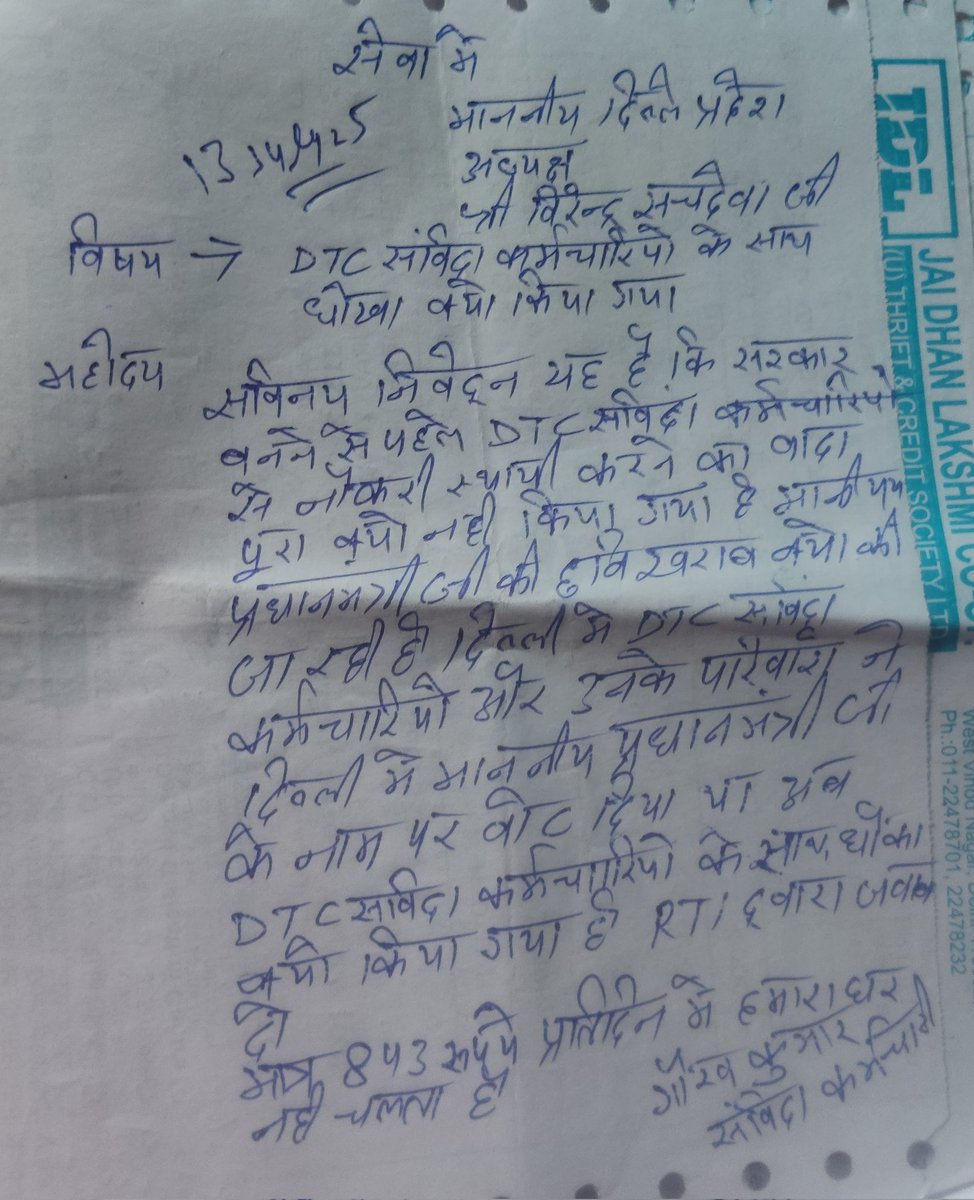 सेवा में
माननीय दिल्ली प्रदेश
अध्यक्ष
श्री विरेन्द्र सचदेवा जी
विषय → DTC संविदा कर्मचारियो के साथ
धोखा क्यो किया गया
महोदय
सविनय निवेदन यह है कि सरकार
बनने से पहले DTC संविदा कर्मचारियो
से नौकरी स्थायी करने का वादा
पुरा क्यो नही किया गया है माननीय
प्रधानमंत्री जी की छवि खराब क्यो की
जा रही है दिल्ली मे DTC संविदा
कर्मचारियो और उनके परिवारो ने
दिल्ली मे माननीय प्रधानमंत्री जी
के नाम पर वोट दिया था अब
DTC संविदा कर्मचारियो के साथ धोका
क्यो किया गया है RTI द्वारा जवाब
दो
मात्र 843 रूपये प्रतिदिन मे हमारा घर
नही चलता है
गौरव कुमार
संविदा कर्मचारी
JAI DHAN LAKSHMI CO
(U) THRIFT & CREDIT SOCIETY LTD
Ph.:011-22478701, 22478232